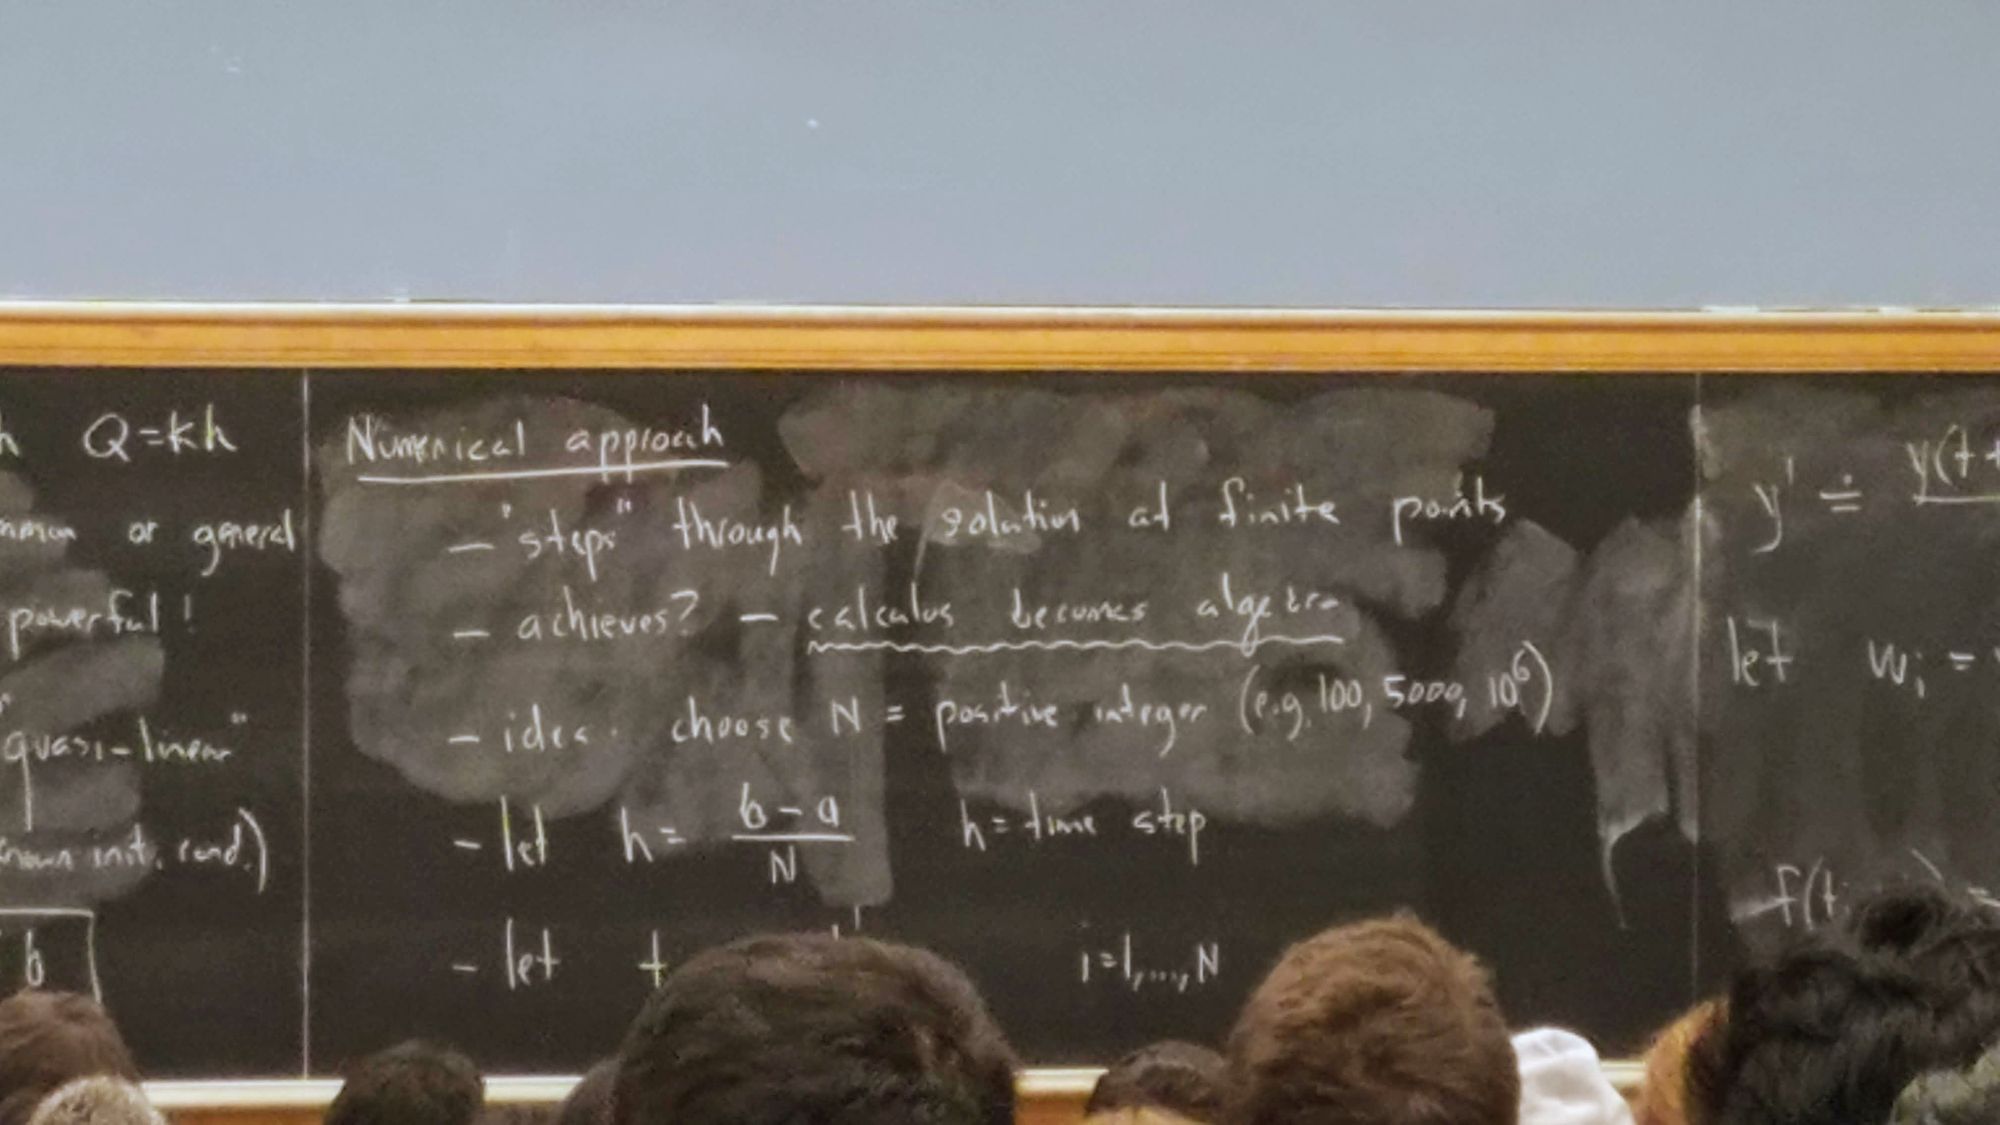 Q=kh
or general
powerful!
quasi-linear"
init. cond.)
b
Numerical approach
- "steps" through the solution at finite points
- achieves? - calculus becomes algebra
- idea: choose N = positive integer (e.g. 100, 5000, 10⁶)
- let h = (b-a)/N h = time step
- let t i=1,...,N
y' ≐ y(t+
let wᵢ =
f(t